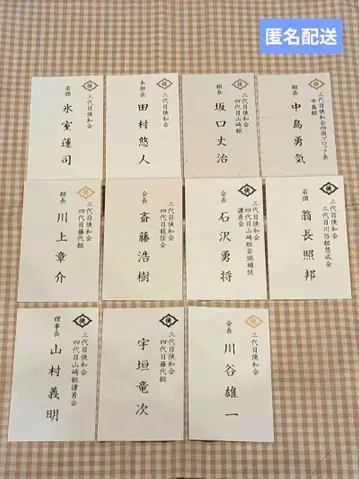 匿名配送
侠
三代目侠和会四国ブロック長
中島組
組長
中島勇気
侠
三代目侠和会
四代目山崎組
組長
坂口丈治
侠
三代目侠和会
本部長
田村悠人
侠
三代目侠和会
若頭
氷室蓮司
侠
三代目侠和会
三代目川谷組悠成会
若頭
翁長照邦
侠
三代目侠和会
四代目山崎組若頭補佐
謙勇会
会長
石沢勇将
三代目侠和会
会長
斎藤浩樹
侠
三代目侠和会
四代目藤代組
組長
川上章介
侠
三代目侠和会
会長
川谷雄一
侠
三代目侠和会
四代目藤代組
宇垣竜次
侠
三代目侠和会
四代目山崎組謙勇会
理事長
山村義明